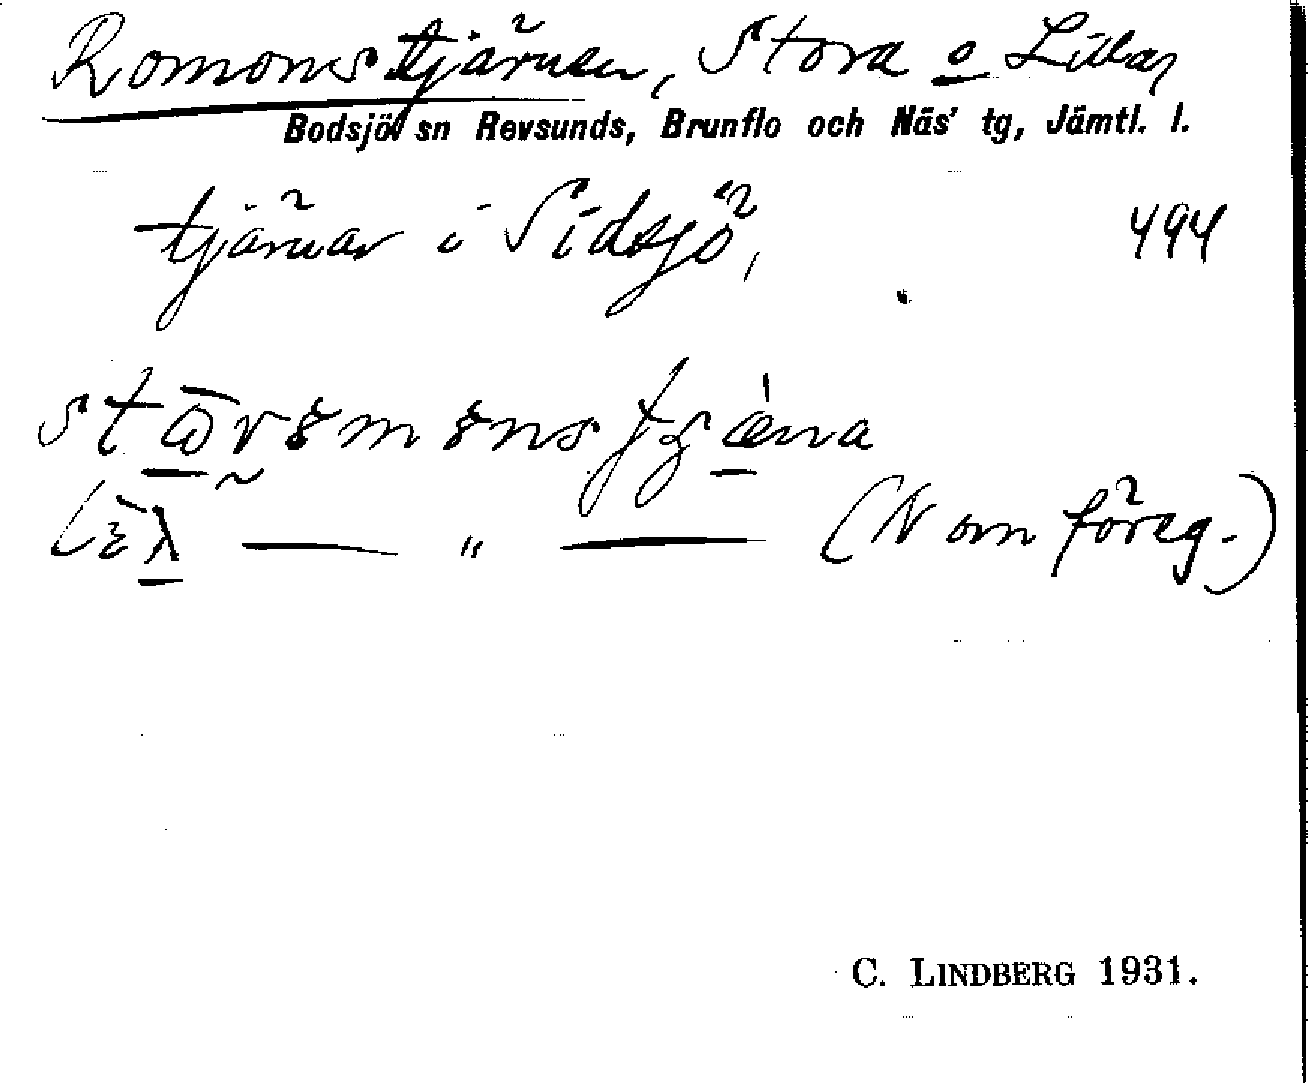 Romonstjärnen, Stora o Lilla,
Bodsjö sn Revsunds, Brunflo och Näs' tg, Jämtl. l.
tjärnar i Sidsjö, 494
— " — (N om föreg.)
C. LINDBERG 1931.